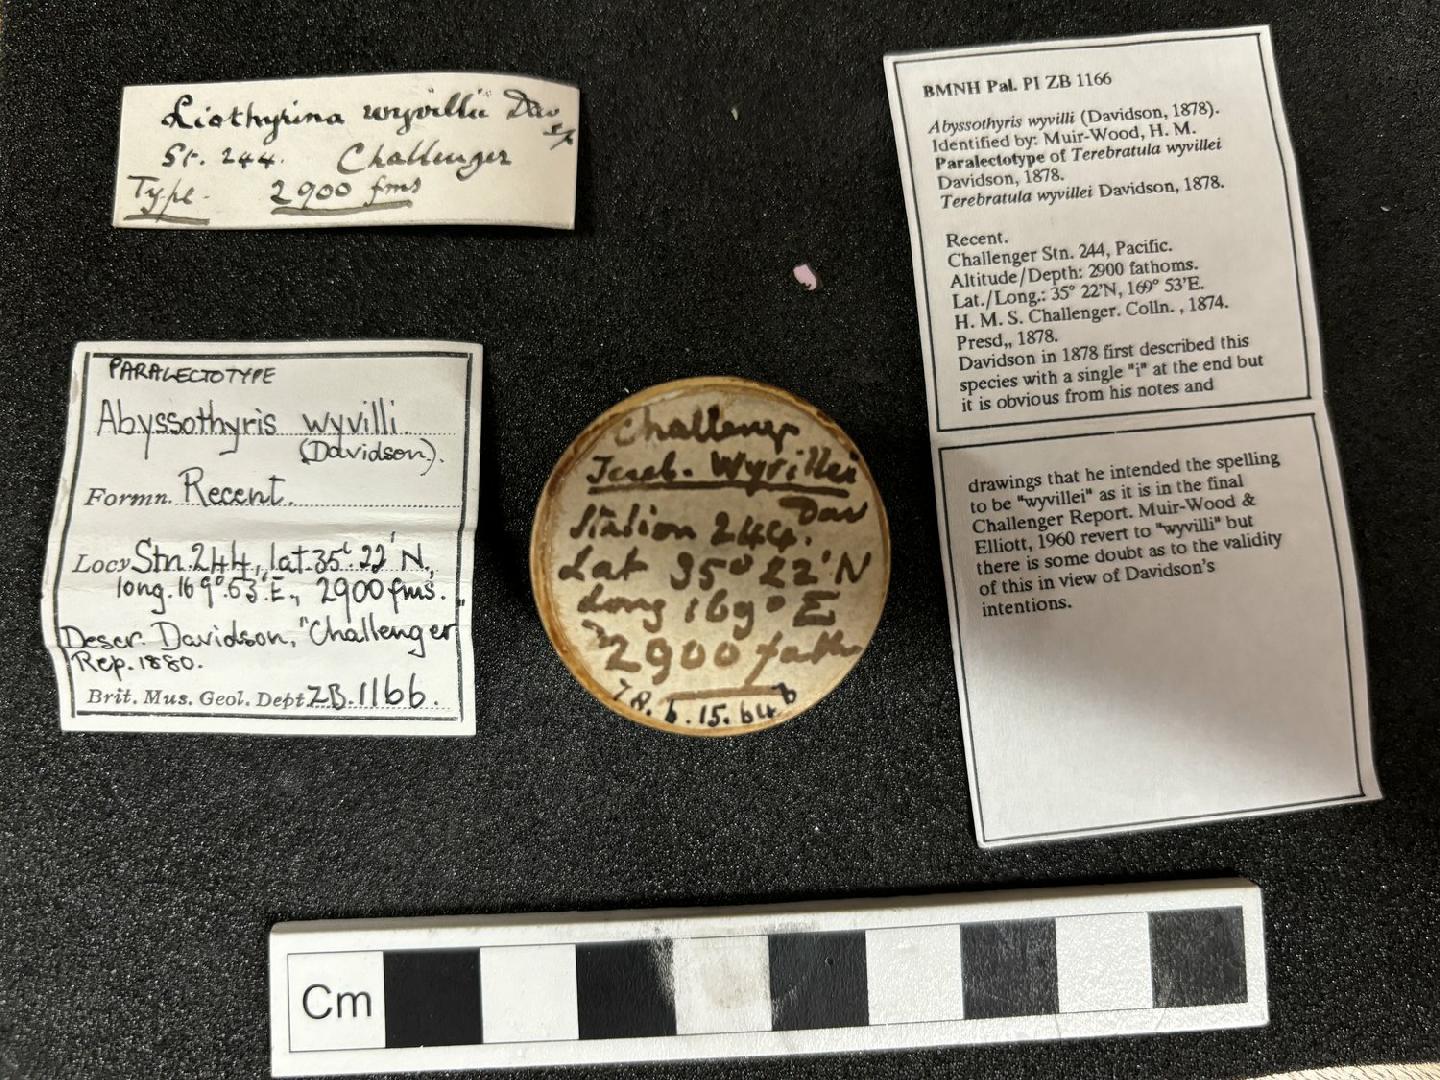 Liothyrina wyvillii Dav
sp
St. 244. Challenger
Type 2900 fms
PARALECTOTYPE
Abyssothyris wyvilli
(Davidson).
Formn. Recent.
Locy Stn. 244, lat. 35° 22' N.
long. 169° 53' E., 2900 fms.
Descr. Davidson, "Challenger"
Rep. 1880.
Brit. Mus. Geol. Dept ZB. 1166.
Challenger
Tereb. Wyvillei
Dav
Station 244.
Lat 35° 22' N
Long 169° E
2900 fath
78. b. 15. 64 b
BMNH Pal. PI ZB 1166
Abyssothyris wyvilli (Davidson, 1878).
Identified by: Muir-Wood, H. M.
Paralectotype of Terebratula wyvillei
Davidson, 1878.
Terebratula wyvillei Davidson, 1878.
Recent.
Challenger Stn. 244, Pacific.
Altitude/Depth: 2900 fathoms.
Lat./Long.: 35° 22'N, 169° 53'E.
H. M. S. Challenger. Colln. , 1874.
Presd,, 1878.
Davidson in 1878 first described this
species with a single "i" at the end but
it is obvious from his notes and
drawings that he intended the spelling
to be "wyvillei" as it is in the final
Challenger Report. Muir-Wood &
Elliott, 1960 revert to "wyvilli" but
there is some doubt as to the validity
of this in view of Davidson's
intentions.
Cm